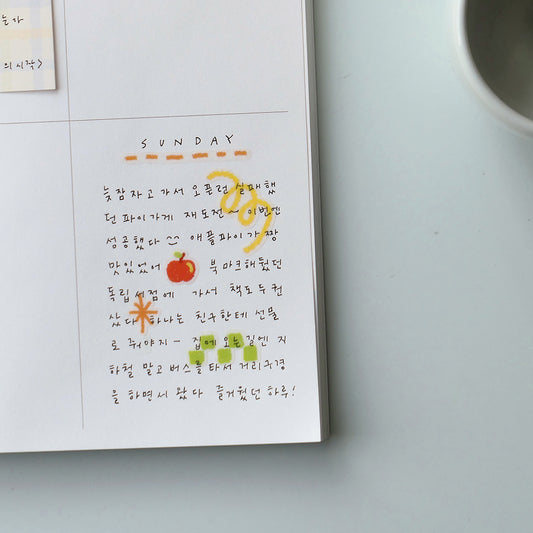 는가
의 시작>
SUNDAY
늦잠 자고 가서 오픈런 실패했
던 파이가게 재도전~ 이번엔
성공했다 애플파이가 짱
맛있었어 북마크해뒀던
독립서점에 가서 책도 두 권
샀다 하나는 친구한테 선물
로 줘야지- 집에 오는 길엔 지
하철 말고 버스를 타서 거리구경
을 하면서 왔다 즐거웠던 하루!